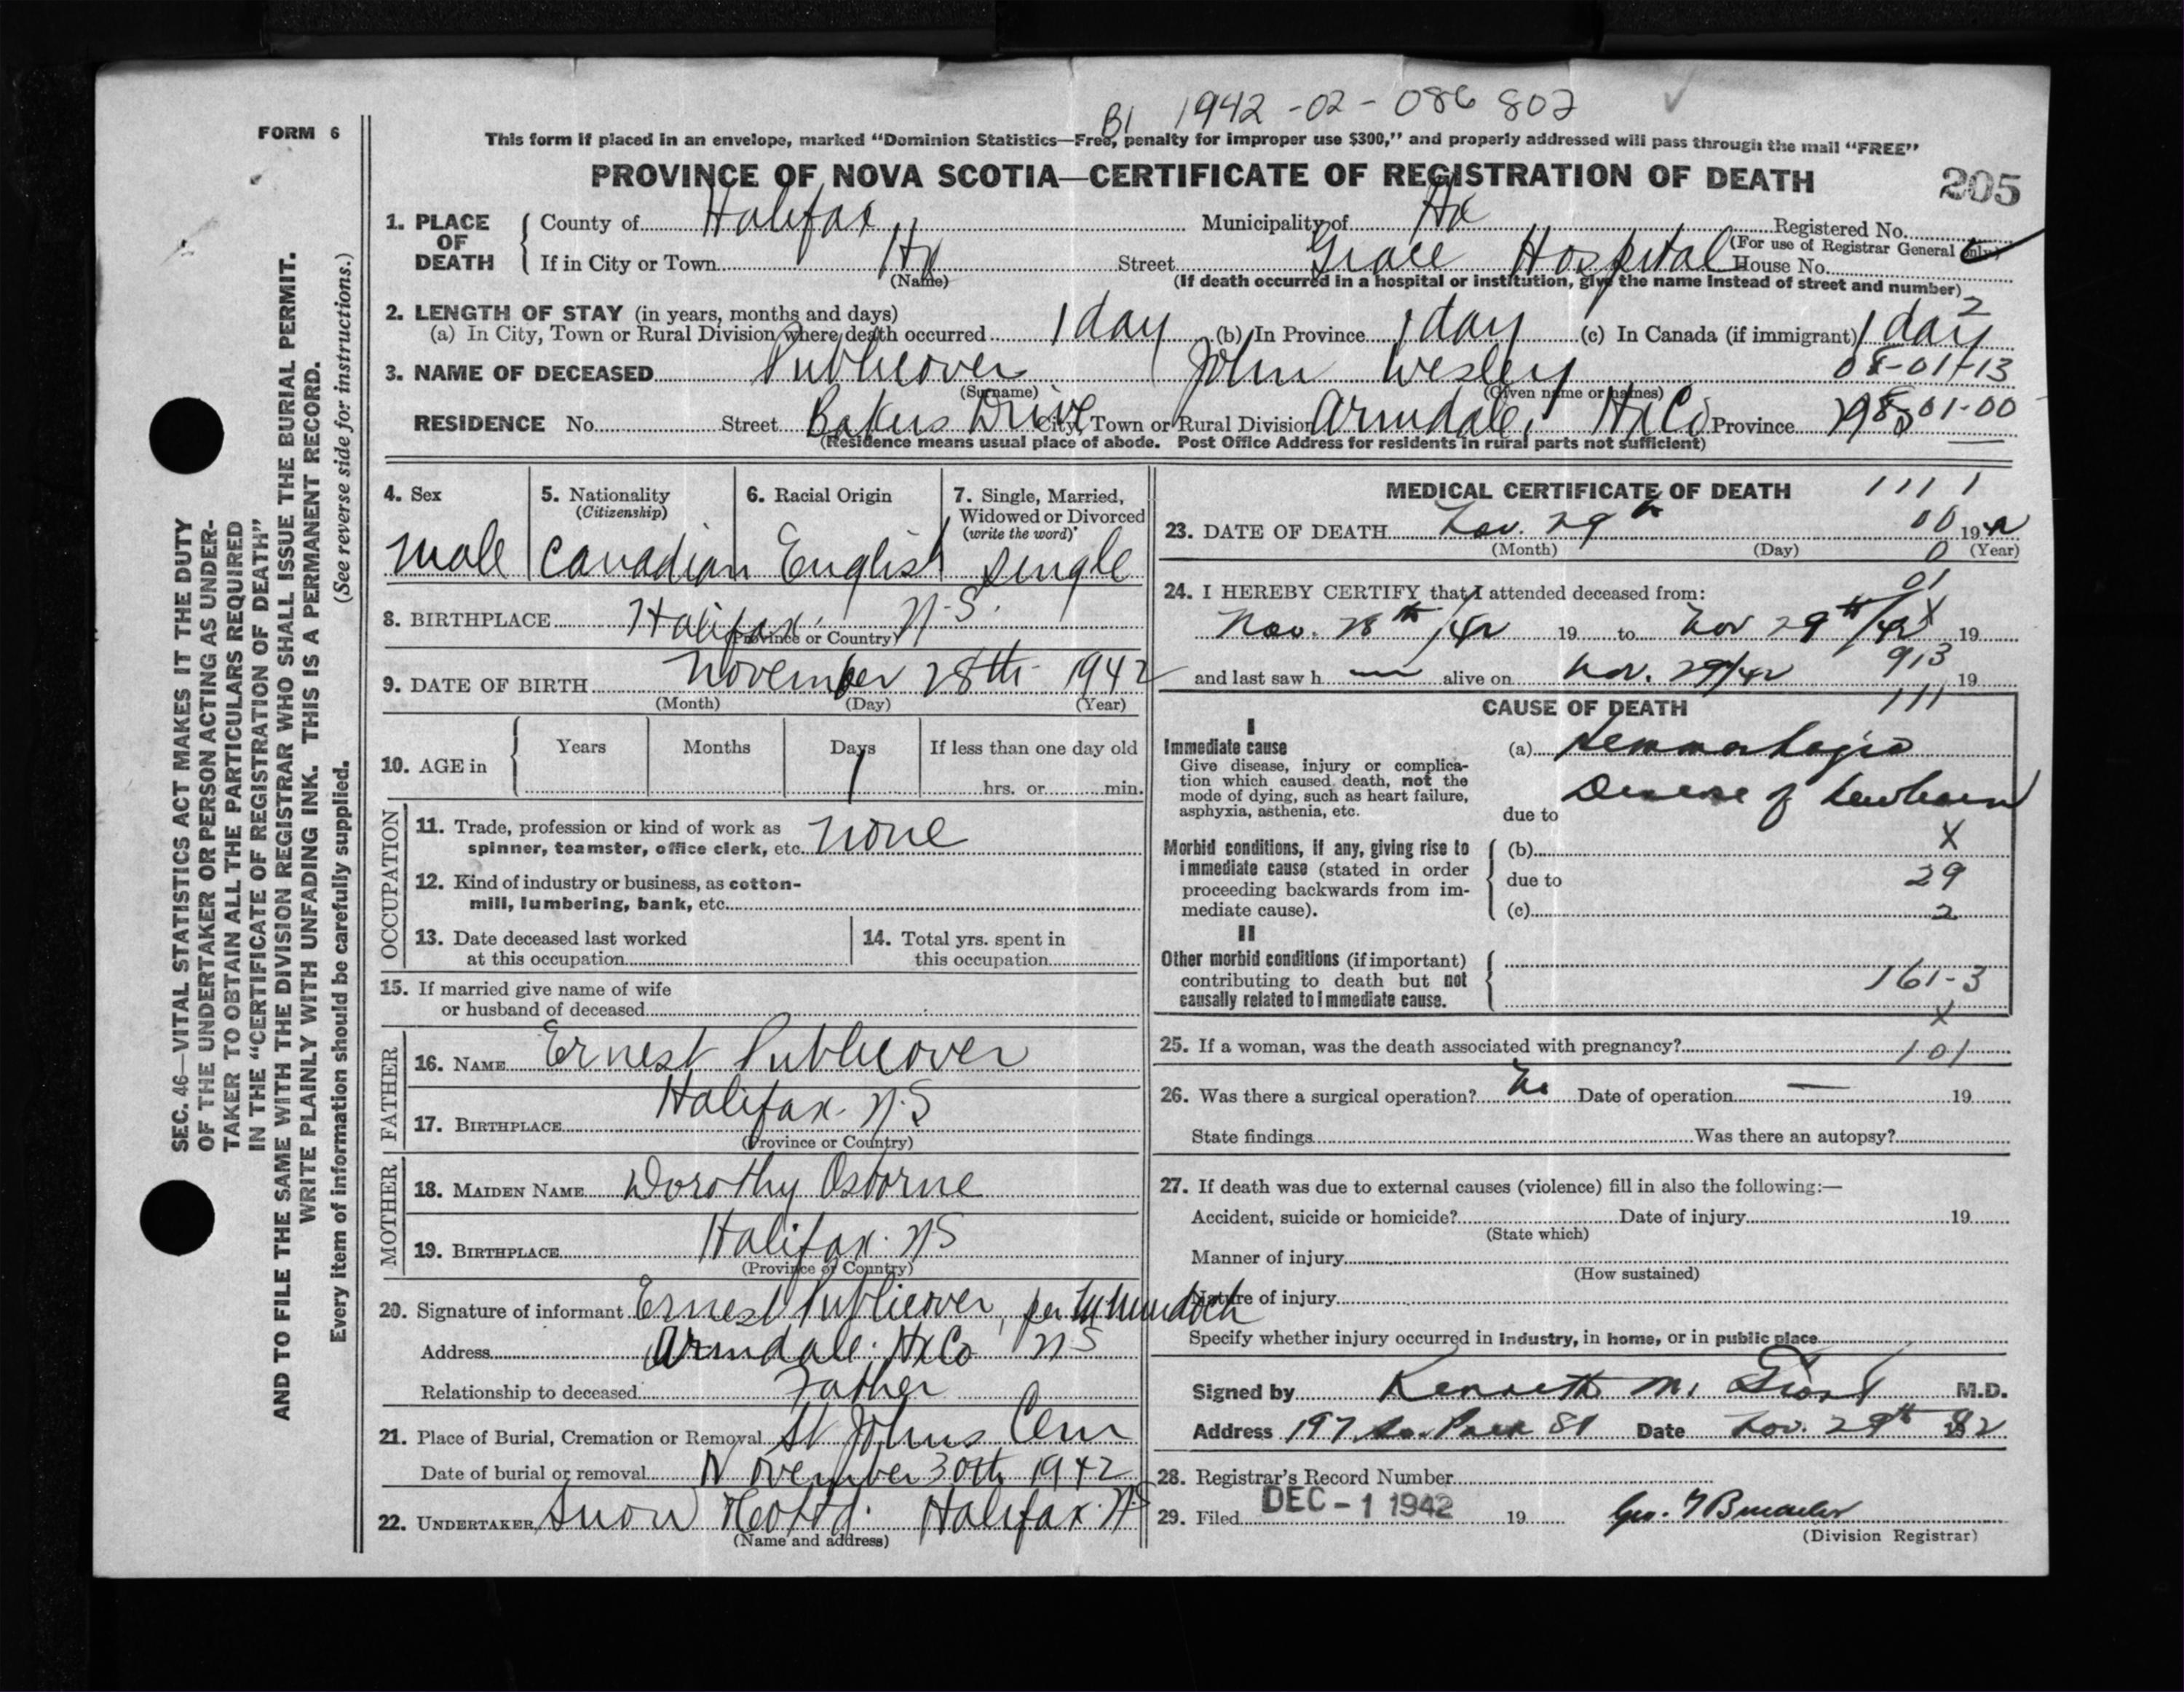 B1 1942-02-086 802
FORM 6
This form if placed in an envelope, marked "Dominion Statistics—Free, penalty for improper use $300," and properly addressed will pass through the mail "FREE"
PROVINCE OF NOVA SCOTIA—CERTIFICATE OF REGISTRATION OF DEATH
205
1. PLACE OF DEATH County of Halifax Municipality of Hx Registered No.
(For use of Registrar General only)
If in City or Town Hx Street Grace Hospital House No.
(Name) (If death occurred in a hospital or institution, give the name instead of street and number)
2. LENGTH OF STAY (in years, months and days) 2
(a) In City, Town or Rural Division where death occurred 1 day (b) In Province 1 day (c) In Canada (if immigrant) 1 day
3. NAME OF DECEASED Publicover John Wesley 08-01-13
(Surname) (Given name or names)
RESIDENCE No. Street Bakers Drive City, Town or Rural Division Armdale, Hx Co Province NS 01-00
(Residence means usual place of abode. Post Office Address for residents in rural parts not sufficient)
4. Sex Male
5. Nationality (Citizenship) Canadian
6. Racial Origin English
7. Single, Married, Widowed or Divorced (write the word) Single
8. BIRTHPLACE Halifax N.S.
(Province or Country)
9. DATE OF BIRTH November 28th 1942
(Month) (Day) (Year)
10. AGE in Years Months Days If less than one day old
1 hrs. or min.
OCCUPATION
11. Trade, profession or kind of work as
spinner, teamster, office clerk, etc. None
12. Kind of industry or business, as cotton-
mill, lumbering, bank, etc.
13. Date deceased last worked
at this occupation
14. Total yrs. spent in
this occupation
15. If married give name of wife
or husband of deceased
FATHER
16. NAME Ernest Publicover
17. BIRTHPLACE Halifax N.S
(Province or Country)
MOTHER
18. MAIDEN NAME Dorothy Osborne
19. BIRTHPLACE Halifax. NS
(Province or Country)
20. Signature of informant Ernest Publicover, per M Murdoch
Address Armdale. Hx Co NS
Relationship to deceased Father
21. Place of Burial, Cremation or Removal St Johns Cem
Date of burial or removal November 30th 1942
22. UNDERTAKER Snow & Co Ltd. Halifax. N.S
(Name and address)
MEDICAL CERTIFICATE OF DEATH 111 1
23. DATE OF DEATH Nov. 29th 00 1942
(Month) (Day) 0 (Year)
01
24. I HEREBY CERTIFY that I attended deceased from:
Nov. 28th /42 19 to Nov 29th/42 X 19
913
and last saw h alive on Nov. 29/42 19
111
CAUSE OF DEATH
I
Immediate cause
Give disease, injury or complica-
tion which caused death, not the
mode of dying, such as heart failure,
asphyxia, asthenia, etc.
(a) Hemmorhagic
Disease of Newborn
due to
X
Morbid conditions, if any, giving rise to
immediate cause (stated in order
proceeding backwards from im-
mediate cause).
(b)
due to 29
(c) 2
II
Other morbid conditions (if important)
contributing to death but not
causally related to immediate cause.
161-3
X
25. If a woman, was the death associated with pregnancy? 101
26. Was there a surgical operation? No Date of operation — 19
State findings Was there an autopsy?
27. If death was due to external causes (violence) fill in also the following:—
Accident, suicide or homicide? Date of injury 19
(State which)
Manner of injury
(How sustained)
Nature of injury
Specify whether injury occurred in industry, in home, or in public place
Signed by Kenneth M. Grant M.D.
Address 197 So. Park St Date Nov. 29th 42
28. Registrar's Record Number
29. Filed DEC -1 1942 19
(Division Registrar)
SEC. 46—VITAL STATISTICS ACT MAKES IT THE DUTY
OF THE UNDERTAKER OR PERSON ACTING AS UNDER-
TAKER TO OBTAIN ALL THE PARTICULARS REQUIRED
IN THE "CERTIFICATE OF REGISTRATION OF DEATH"
AND TO FILE THE SAME WITH THE DIVISION REGISTRAR WHO SHALL ISSUE THE BURIAL PERMIT.
WRITE PLAINLY WITH UNFADING INK. THIS IS A PERMANENT RECORD.
Every item of information should be carefully supplied. (See reverse side for instructions.)